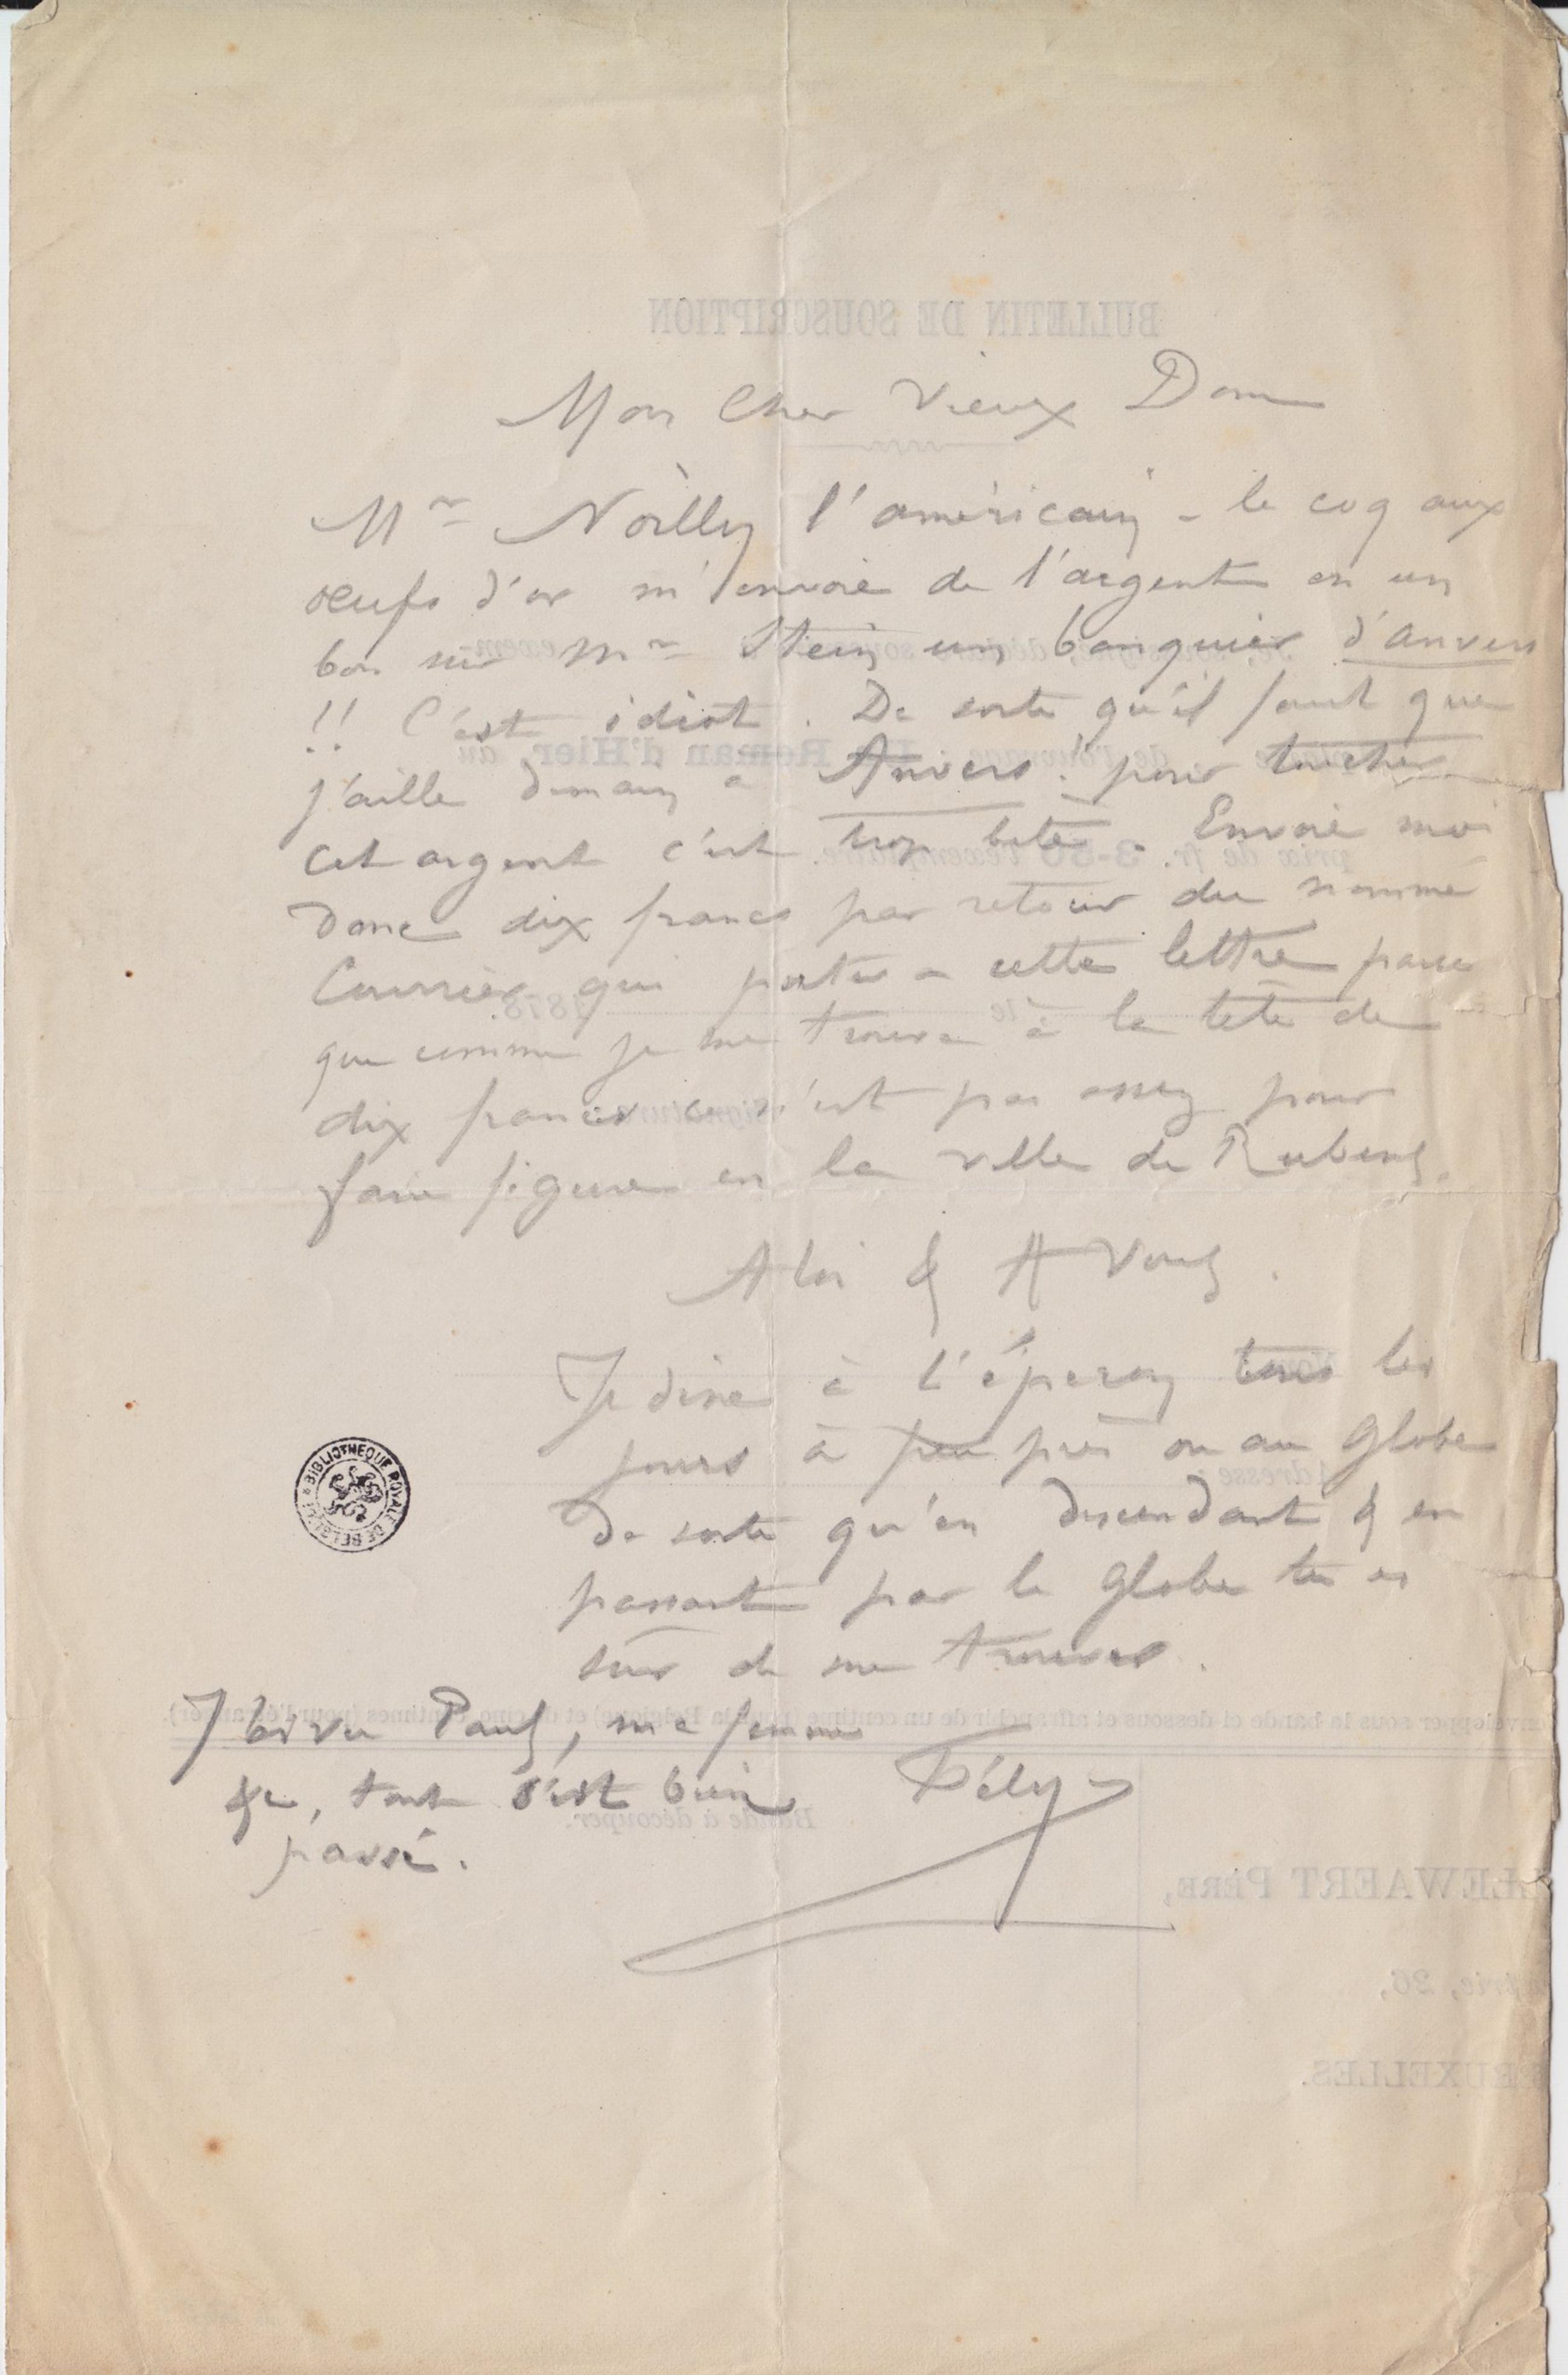 BULLETIN DE SOUSCRIPTION
Mon Cher Vieux Dom
Mr Noilly l'américain - le coq aux
œufs d'or m'envoie de l'argent en un
bon sur Mr Stein un banquier d'anvers
!! C'est idiot. De sorte qu'il faut que
j'aille demain a Anvers. pour toucher
cet argent c'est trop bête. Envoie moi
donc dix francs par retour du nommé
Courrier qui portera cette lettre parce
que comme je me trouve à la tête de
dix francs ce n'est pas assez pour
faire figure en la ville de Rubens.
A toi & A Vous.
Je dine à l'éperon tous les
jours à peu près ou au Globe
de sorte qu'en descendant & en
passant par le Globe tu es
sûr de me trouver.
J'ai vu Paul, ma femme
&c, tout s'est bien
passé.
Fély
BIBLIOTHEQUE ROYALE DE BELGIQUE
Roman d'Hier, au
prix de fr. 3-50 l'exemplaire.
le 1878.
Signature
Adresse :
Bande à découper.
LEWAERT PÈRE,
26,
BRUXELLES.